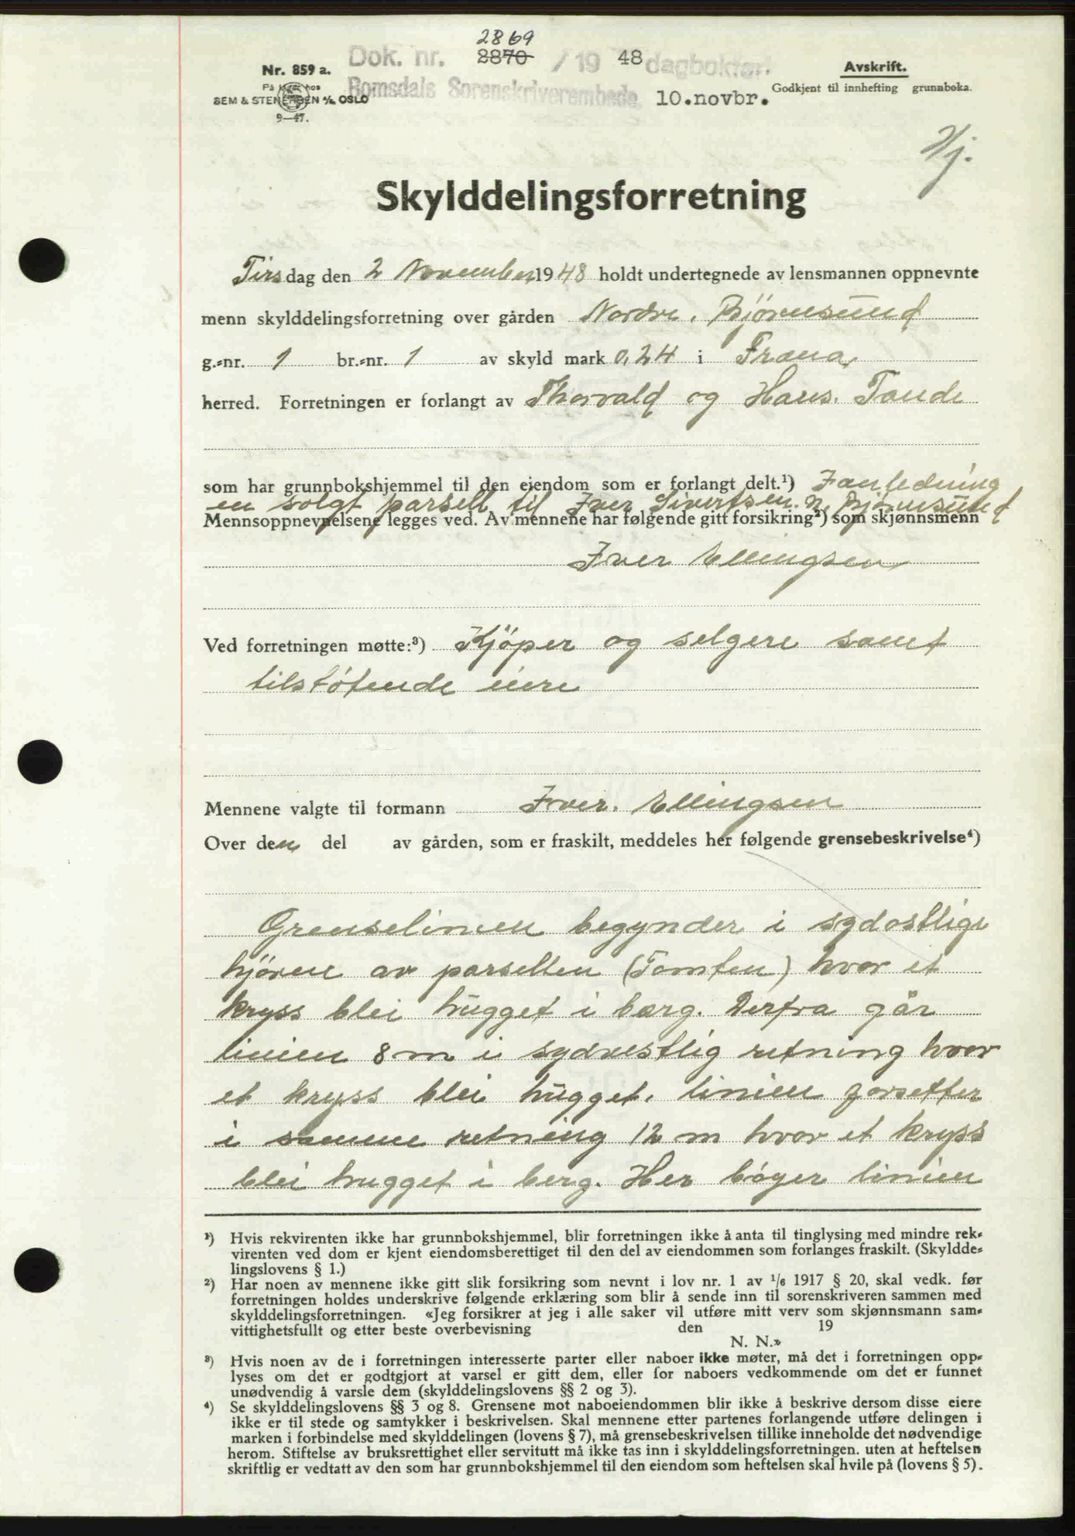 2869
Dok. nr. 2870 / 19 48 dagboktort
Nr. 859 a.
Avskrift.
På lager hos
Romsdals Sorenskriverembede
10.novbr.
Godkjent til innhefting grunnboka.
SEM & STENERSEN A/S OSLO
9—47.
Skylddelingsforretning
Tirsdag den 2 November 1948 holdt undertegnede av lensmannen oppnevnte
menn skylddelingsforretning over gården Nordre. Bjørnsund
g.-nr. 1 br.-nr. 1 av skyld mark 0,24 i Fræna
herred. Forretningen er forlangt av Thorvald og Hans. Tande
som har grunnbokshjemmel til den eiendom som er forlangt delt.¹) I anledning
en solgt parsell til Iver Sivertsen. N. Bjørnsund
Mennsoppnevnelsene legges ved. Av mennene har følgende gitt forsikring²) som skjønnsmenn
Iver Ellingsen
Ved forretningen møtte:³) Kjöper og selgere samt
tilstötende eiere
Mennene valgte til formann Iver. Ellingsen
Over den del av gården, som er fraskilt, meddeles her følgende grensebeskrivelse⁴)
Grenselinien begynder i sydostlige
hjörne av parsellen (Tomten) hvor et
kryss blei hugget i berg. Derfra går
linien 8 m i sydvestlig retning hvor
et kryss blei hugget. linien forsetter
i samme retning 12 m hvor et kryss
blei hugget i berg. Her böyer linien
¹) Hvis rekvirenten ikke har grunnbokshjemmel, blir forretningen ikke å anta til tinglysing med mindre rek-
virenten ved dom er kjent eiendomsberettiget til den del av eiendommen som forlanges fraskilt. (Skyldde-
lingslovens § 1.)
²) Har noen av mennene ikke gitt slik forsikring som nevnt i lov nr. 1 av ¹/6 1917 § 20, skal vedk. før
forretningen holdes underskrive følgende erklæring som blir å sende inn til sorenskriveren sammen med
skylddelingsforretningen. «Jeg forsikrer at jeg i alle saker vil utføre mitt verv som skjønnsmann sam-
vittighetsfullt og etter beste overbevisning den 19
N. N.»
³) Hvis noen av de i forretningen interesserte parter eller naboer ikke møter, må det i forretningen opp-
lyses om det er godtgjort at varsel er gitt dem, eller for naboers vedkommende om det er funnet
unødvendig å varsle dem (skylddelingslovens §§ 2 og 3).
⁴) Se skylddelingslovens §§ 3 og 8. Grensene mot naboeiendommen blir ikke å beskrive dersom disse eiere
ikke er til stede og samtykker i beskrivelsen. Skal mennene etter partenes forlangende utføre delingen i
marken i forbindelse med skylddelingen (lovens § 7), må grensebeskrivelsen tillike inneholde det nødvendige
herom. Stiftelse av bruksrettighet eller servitutt må ikke tas inn i skylddelingsforretningen. uten at heftelsen
skriftlig er vedtatt av den som har grunnbokshjemmel til den eiendom som heftelsen skal hvile på (lovens § 5).